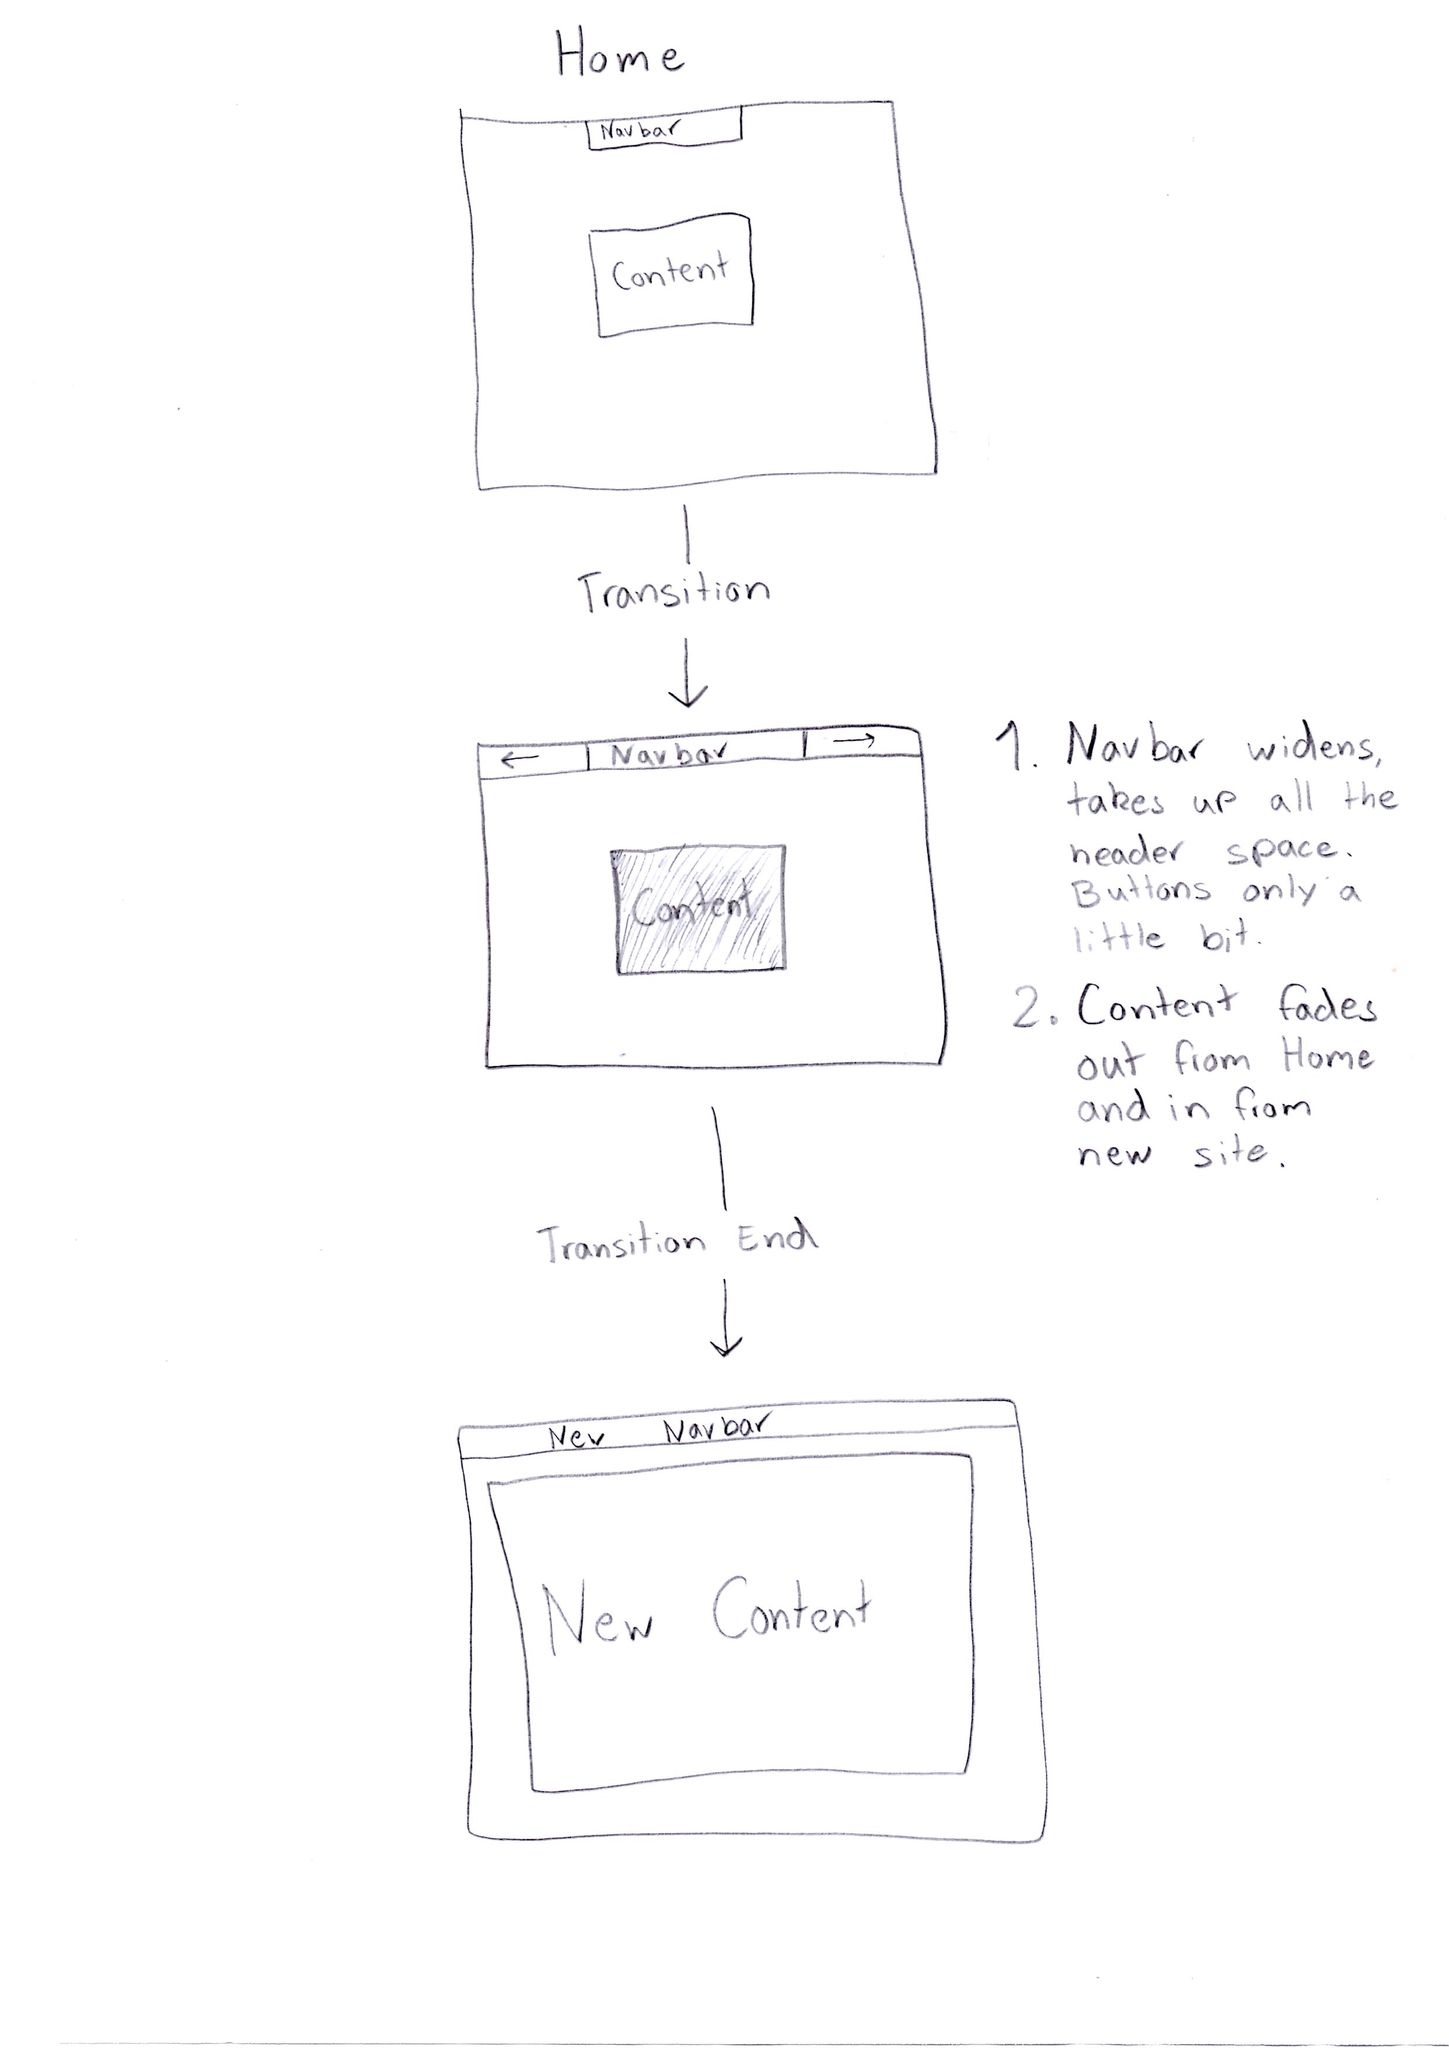 Home
Navbar
Content
Transition
← Navbar →
Content
1. Navbar widens,
takes up all the
header space.
Buttons only a
little bit.
2. Content fades
out from Home
and in from
new site.
Transition End
New Navbar
New Content